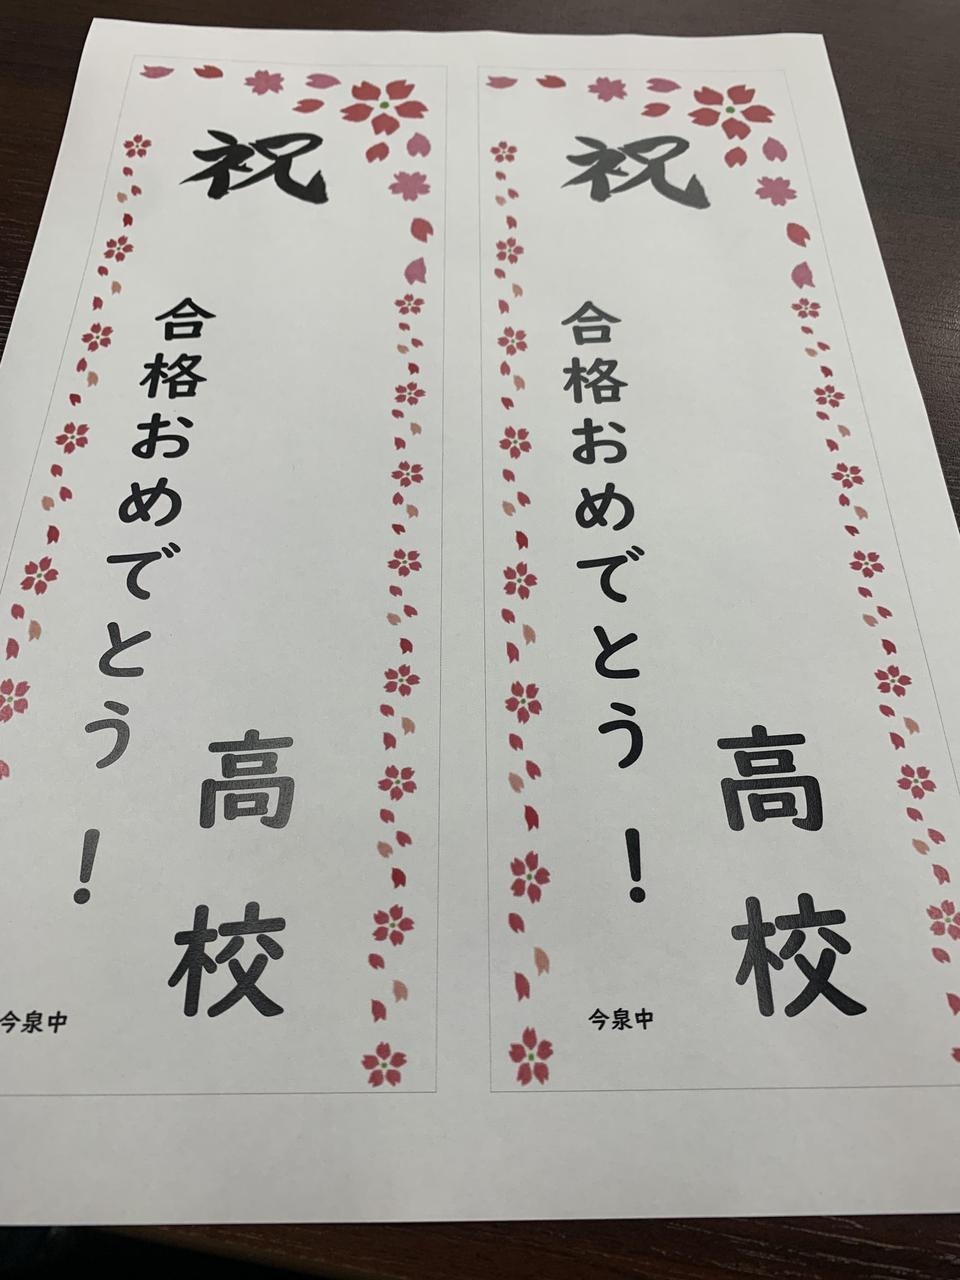 祝
高校
合格おめでとう！
今泉中
祝
高校
合格おめでとう！
今泉中